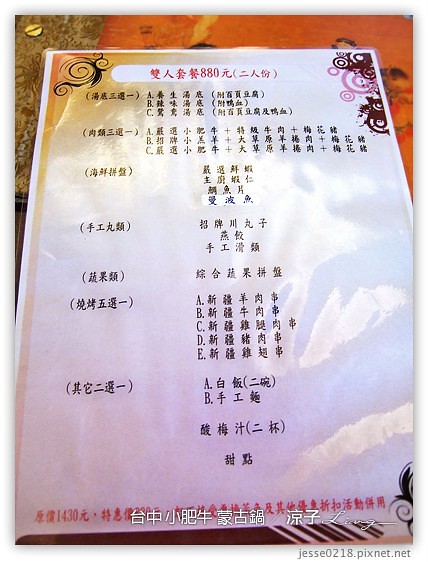 雙人套餐880元(二人份)
(湯底三選一) A.養生湯底 (附百頁豆腐)
B.辣味湯底 (附鴨血)
C.鴛鴦湯底 (附百頁豆腐及鴨血)
(肉類三選一) A.嚴選小肥牛+特級牛肉+梅花豬
B.招牌小羔羊+大草原羊捲肉+梅花豬
C.嚴選小肥牛+大草原羊捲肉+梅花豬
(海鮮拼盤) 嚴選鮮蝦
主廚蝦仁
鯛魚片
曼波魚
(手工丸類) 招牌川丸子
燕餃
手工滑類
(蔬果類) 綜合蔬果拼盤
(燒烤五選一) A.新疆羊肉串
B.新疆牛肉串
C.新疆雞腿肉串
D.新疆豬肉串
E.新疆雞翅串
(其它二選一) A.白飯(二碗)
B.手工麵
酸梅汁(二杯)
甜點
原價1430元, 特惠價880元, 及其他優惠折扣活動併用
台中 小肥牛 蒙古鍋 涼子 Ling
jesse0218.pixnet.net